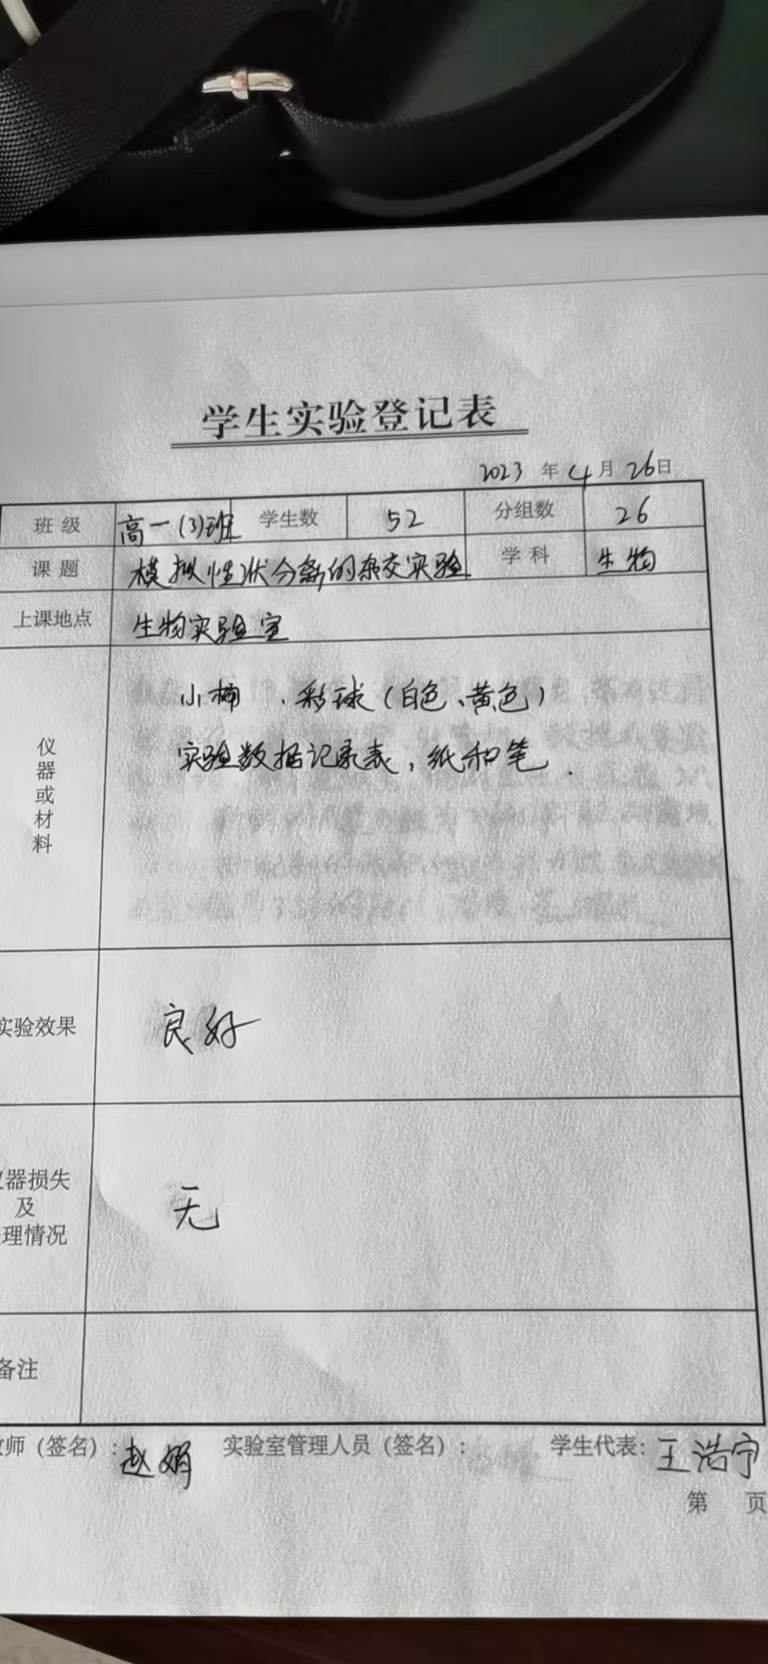 学生实验登记表
2023 年 4 月 26 日
班 级 高一(3)班 学生数 52 分组数 26
课 题 模拟性状分离的杂交实验 学 科 生物
上课地点 生物实验室
仪器或材料
小桶、彩球(白色、黄色)
实验数据记录表,纸和笔.
实验效果 良好
器损失
及
理情况
无
备注
师(签名): 赵娟 实验室管理人员(签名): 学生代表: 王浩宇
第 页